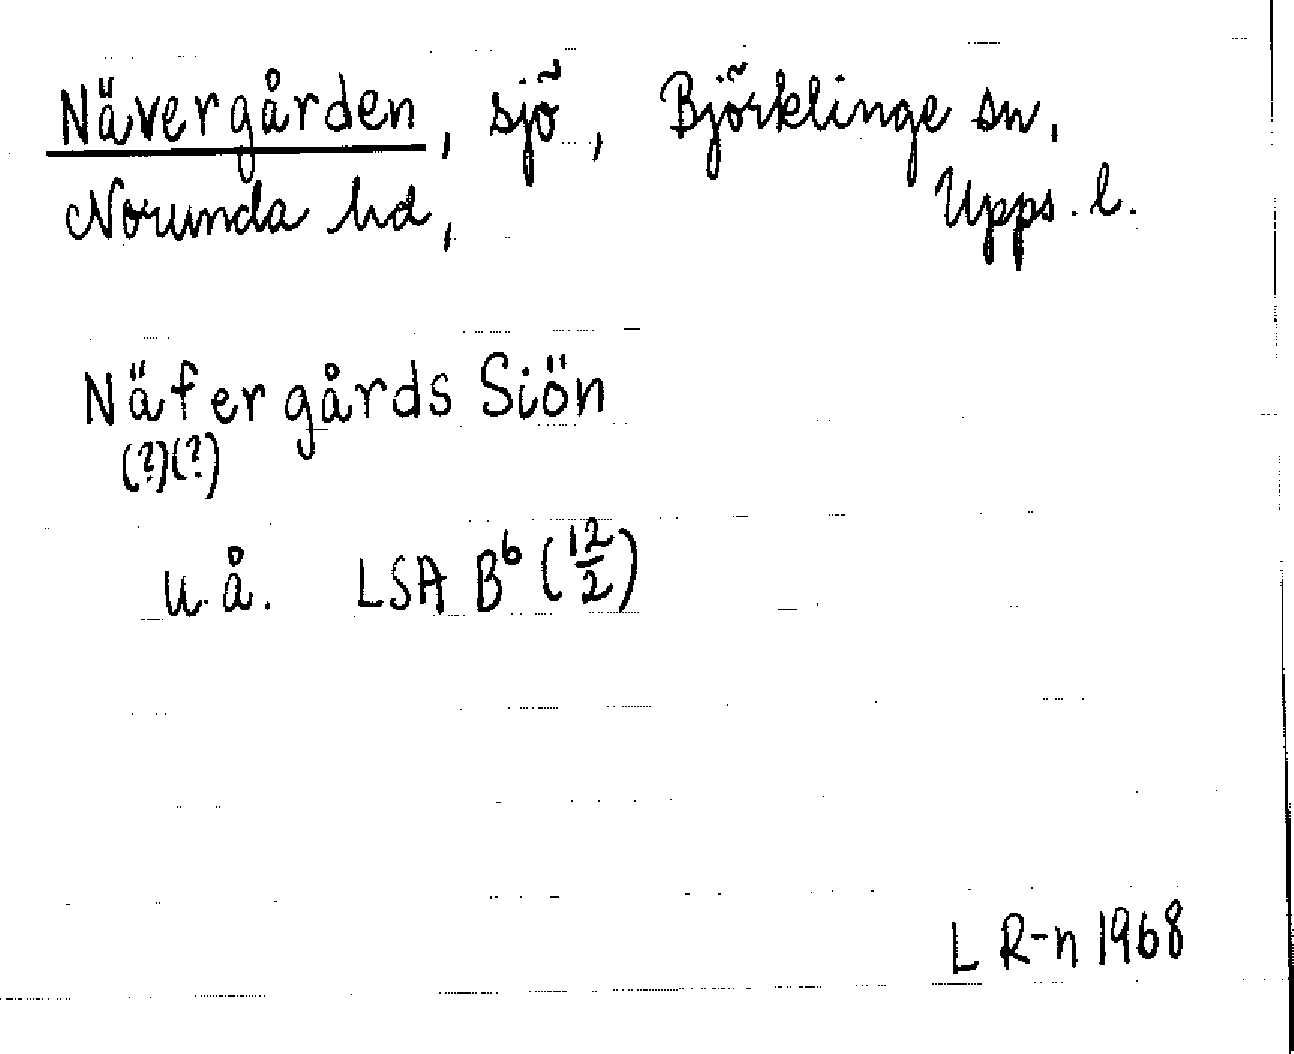 Nävergården, sjö, Björklinge sn,
Norunda hd, Upps. l.
Näfergårds Siön
(?)(?)
u.å. LSA B6 (12/2)
L R-n 1968